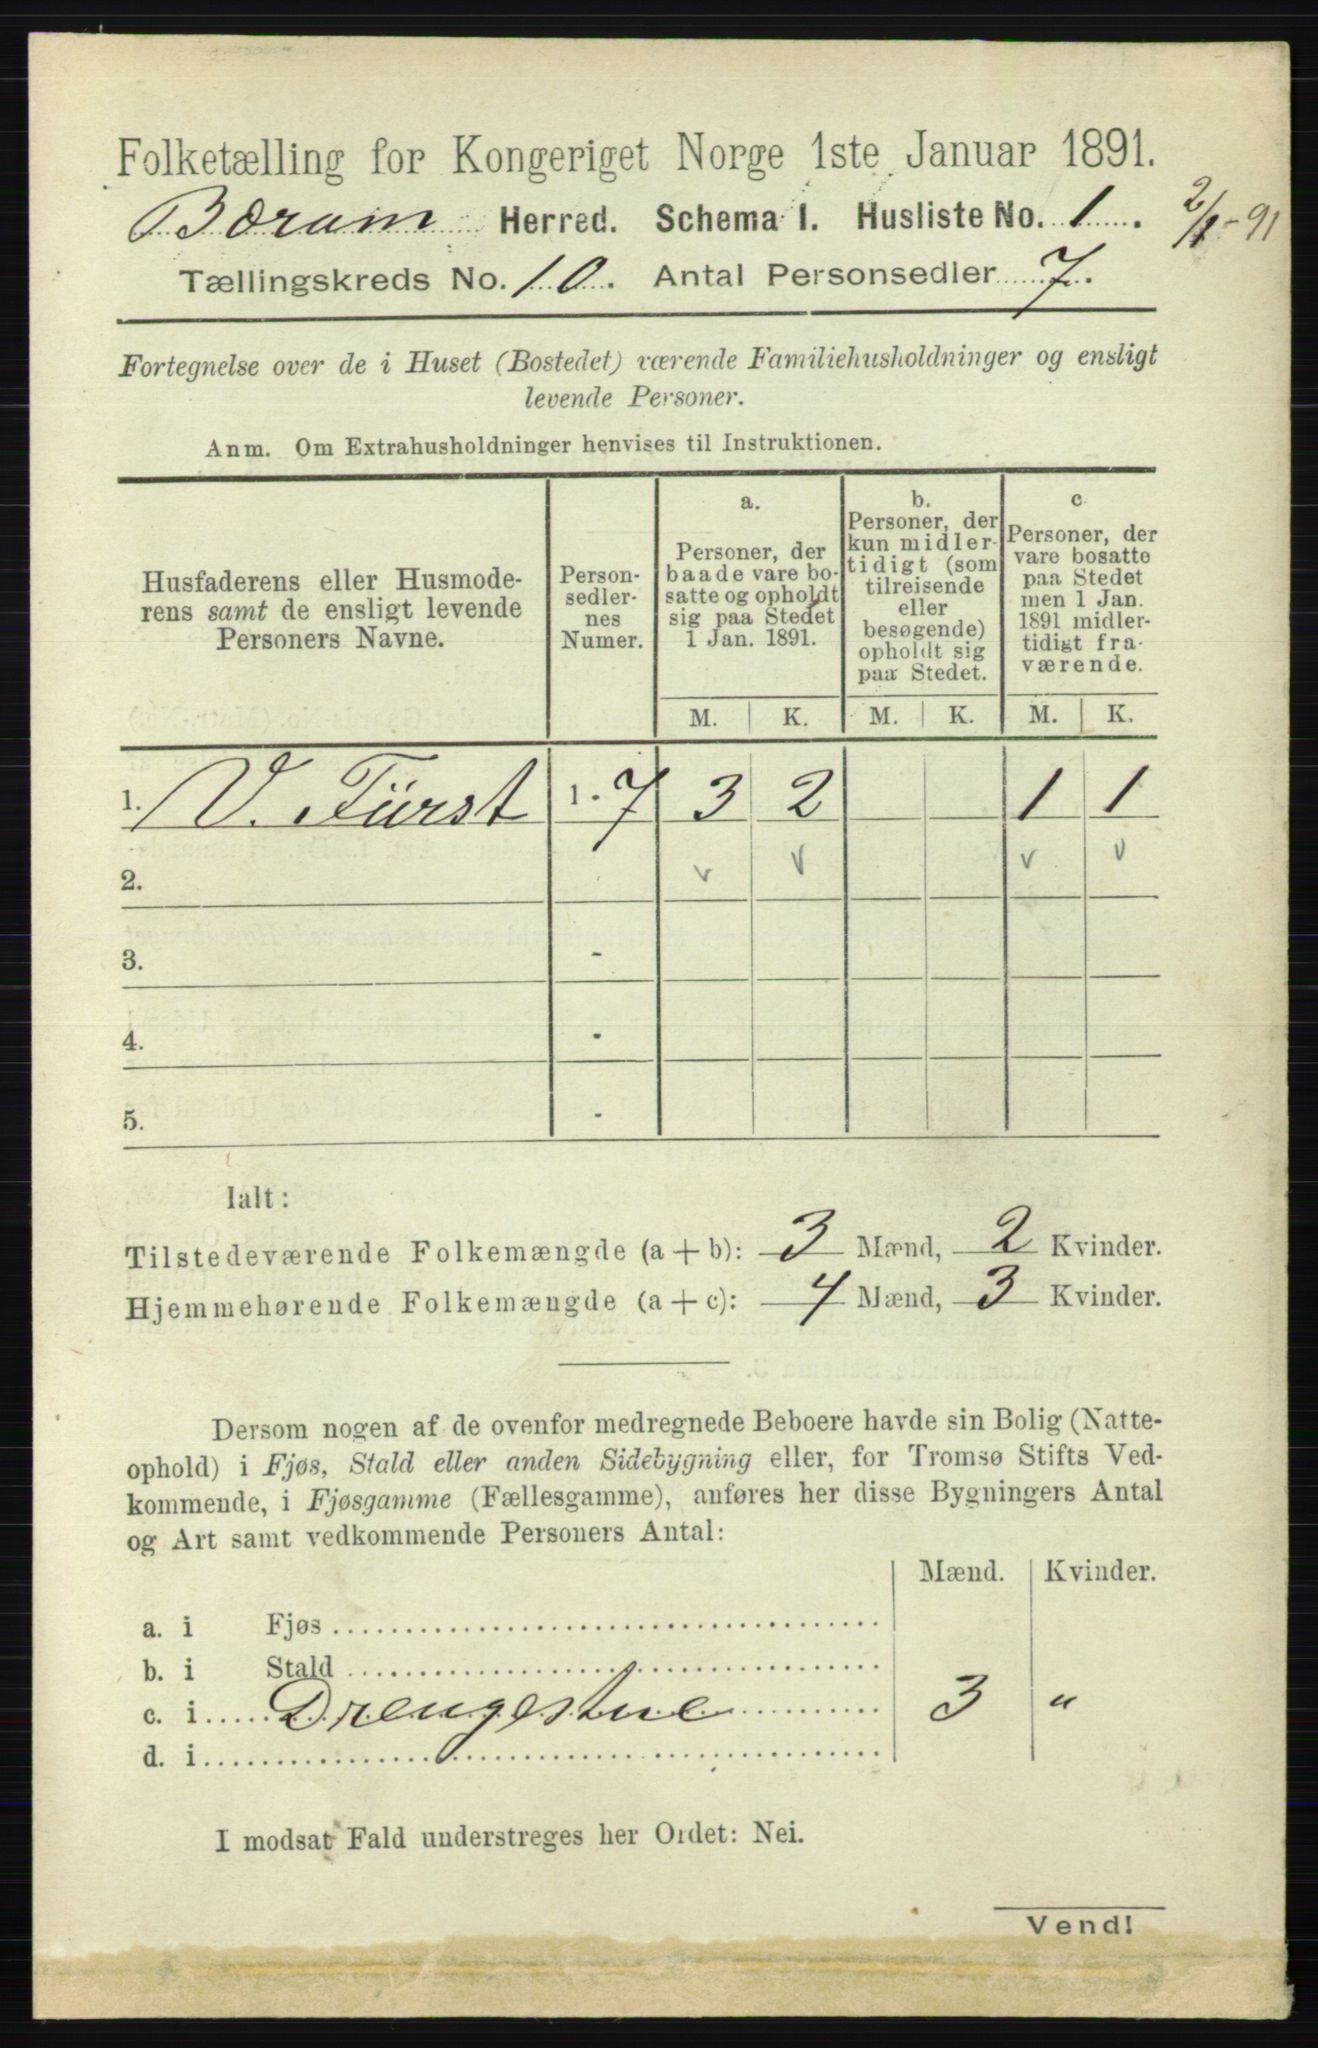 Folketælling for Kongeriget Norge 1ste Januar 1891.
Bærum Herred. Schema I. Husliste No. 1. 2/1-91
Tællingskreds No. 10. Antal Personsedler 7.
Fortegnelse over de i Huset (Bostedet) værende Familiehusholdninger og ensligt
levende Personer.
Anm. Om Extrahusholdninger henvises til Instruktionen.
Husfaderens eller Husmode-
rens samt de ensligt levende
Personers Navne.
Person-
sedler-
nes
Numer.
a.
Personer, der
baade vare bo-
satte og opholdt
sig paa Stedet
1 Jan. 1891.
M. K.
b.
Personer, der
kun midler-
tidigt (som
tilreisende
eller
besøgende)
opholdt sig
paa Stedet.
M. K.
c
Personer, der
vare bosatte
paa Stedet
men 1 Jan.
1891 midler-
tidigt fra-
værende.
M. K.
1. V. Fürst 1-7 3 2 1 1
2. v v v v
3. -
4. -
5. -
Ialt:
Tilstedeværende Folkemængde (a + b): 3 Mænd, 2 Kvinder.
Hjemmehørende Folkemængde (a + c): 4 Mænd, 3 Kvinder.
Dersom nogen af de ovenfor medregnede Beboere havde sin Bolig (Natte-
ophold) i Fjøs, Stald eller anden Sidebygning eller, for Tromsø Stifts Ved-
kommende, i Fjøsgamme (Fællesgamme), anføres her disse Bygningers Antal
og Art samt vedkommende Personers Antal:
Mænd. Kvinder.
a. i Fjøs
b. i Stald
c. i Drengestue 3 "
d. i
I modsat Fald understreges her Ordet: Nei.
Vend!